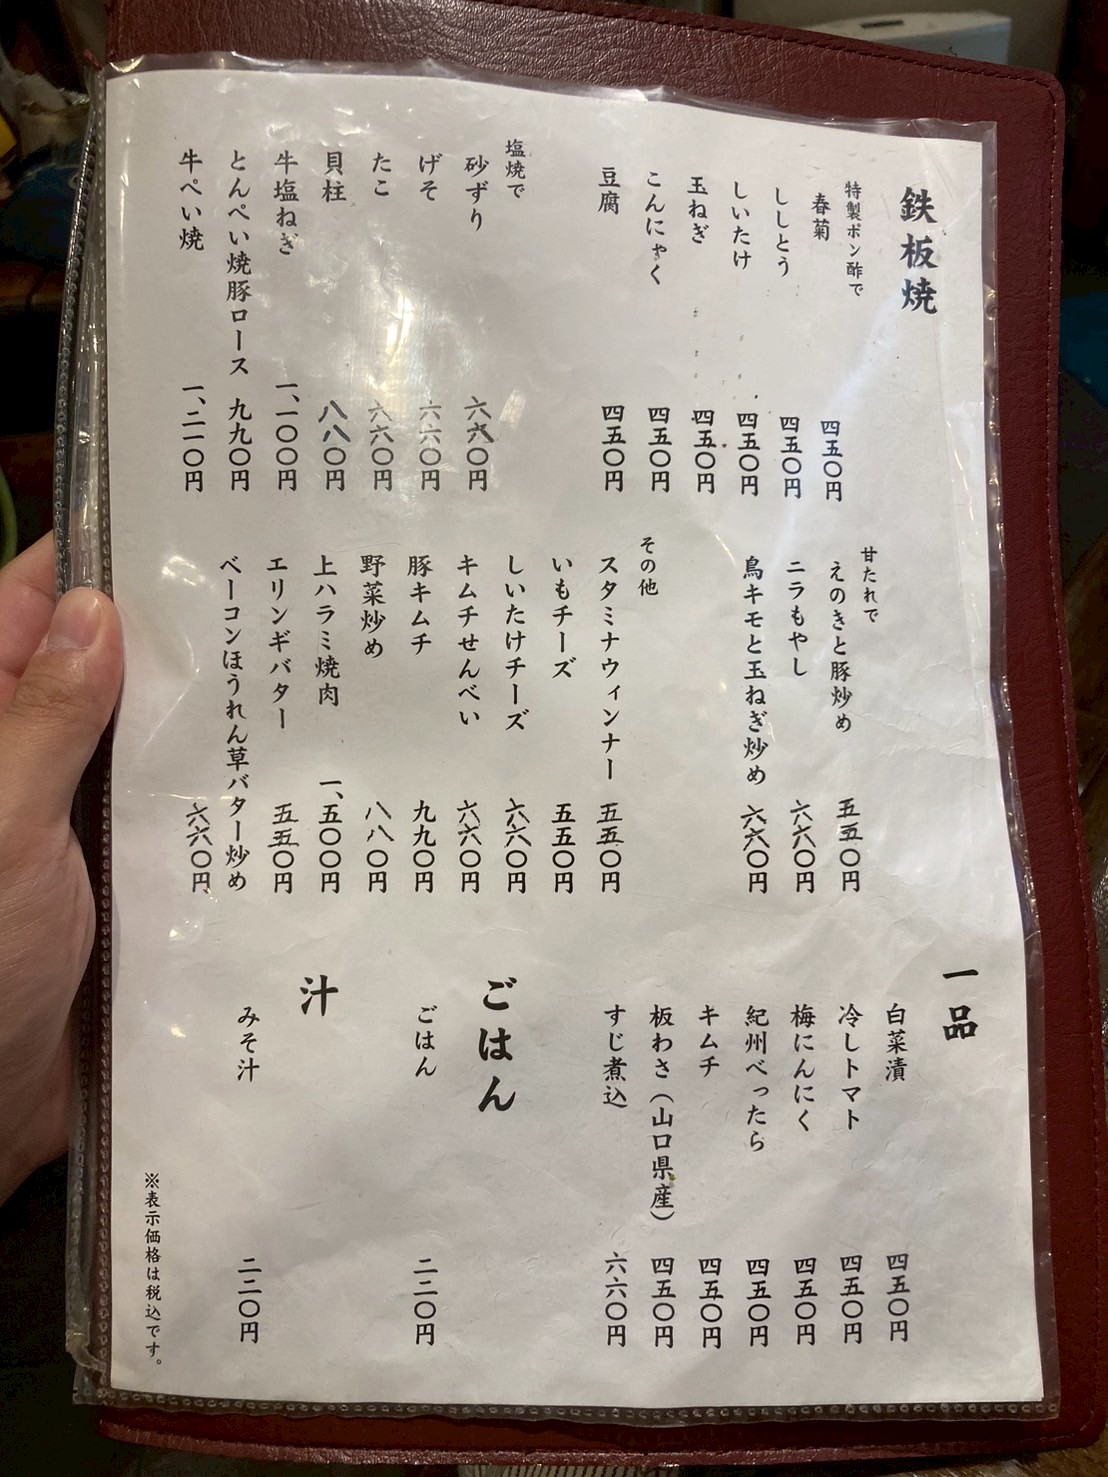 鉄板焼
特製ポン酢で
春菊 四五〇円
ししとう 四五〇円
しいたけ 四五〇円
玉ねぎ 四五〇円
こんにゃく 四五〇円
豆腐 四五〇円
塩焼で
砂ずり 六六〇円
げそ 六六〇円
たこ 六六〇円
貝柱 八八〇円
牛塩ねぎ 一、一〇〇円
とんぺい焼豚ロース 九九〇円
牛ぺい焼 一、二一〇円
甘たれで
えのきと豚炒め 五五〇円
ニラもやし 六六〇円
鳥キモと玉ねぎ炒め 六六〇円
その他
スタミナウィンナー 五五〇円
いもチーズ 五五〇円
しいたけチーズ 六六〇円
キムチせんべい 六六〇円
豚キムチ 九九〇円
野菜炒め 八八〇円
上ハラミ焼肉 一、五〇〇円
エリンギバター 五五〇円
ベーコンほうれん草バター炒め 六六〇円
一品
白菜漬 四五〇円
冷しトマト 四五〇円
梅にんにく 四五〇円
紀州べったら 四五〇円
キムチ 四五〇円
板わさ（山口県産） 四五〇円
すじ煮込 六六〇円
ごはん
ごはん 二二〇円
汁
みそ汁 二二〇円
※表示価格は税込です。